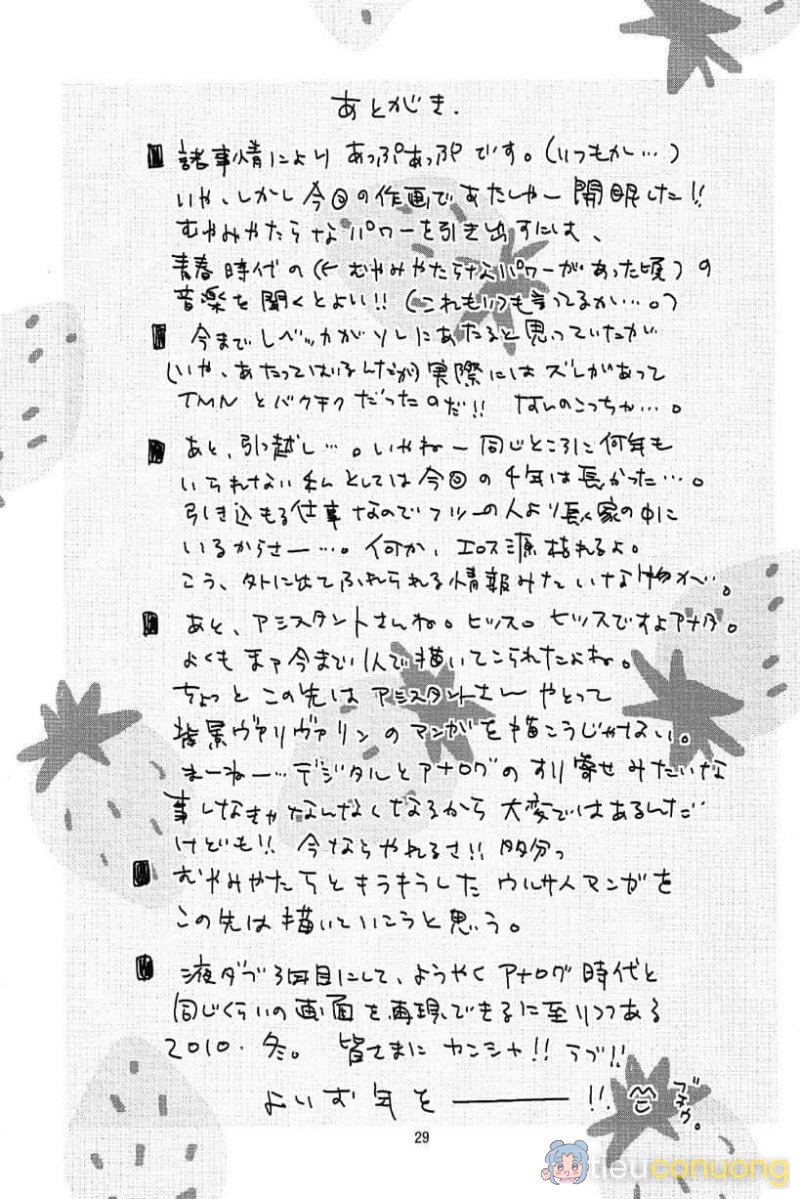 あとがき.
■ 諸事情により あっぷあっぷ です。(いつもか…)
いや、しかし今回の作画であたしゃー 開眼した!!
むやみやたらなパワーを引き出すには、
青春時代の(← むやみやたらなパワーがあった頃)の
音楽を聞くとよい!!(これもいつも言ってるか…。)
■ 今までレベッカがソレにあたると思っていたが
(いや、あたってはいるんだが)実際にはズレがあって
TMNとバクチクだったのだ!! なんのこっちゃ…。
■ あと、引っ越し…。いやねー同じところに何年も
いられない私としては今回の4年は長かった…。
引き込もる仕事なのでフツーの人より長く家の中に
いるからさー…。何か、エロス源枯れるよ。
こう、外に出てふれられる情報みたいな物が…。
■ あと、アシスタントさんね。ヒッス。ヒッスですよアナタ。
よくもまァ今まで1人で描いてこられたよね。
ちょっとこの先はアシスタントさんやとって
背景ヴァリヴァリンのマンガを描こうじゃない。
まーねー…デジタルとアナログのすり寄せみたいな
事しなきゃなんなくなるから大変ではあるんだ
けども!! 今ならやれるさ!! 多分っ
■ むやみやたらとキラキラした ウルサイマンガを
この先は描いていこうと思う。
■ 液タブ3回目にして、ようやくアナログ時代と
同じくらいの画面を再現できるに至りつつある
2010.冬。 皆さまに カンシャ!! ラブ!!
よいお年を―――!!
ブチゥ。
29
tieuconuong